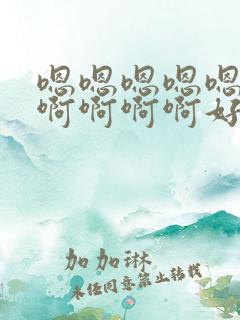 嗯嗯嗯嗯嗯
啊啊啊啊好
加加琳
未经同意禁止转载